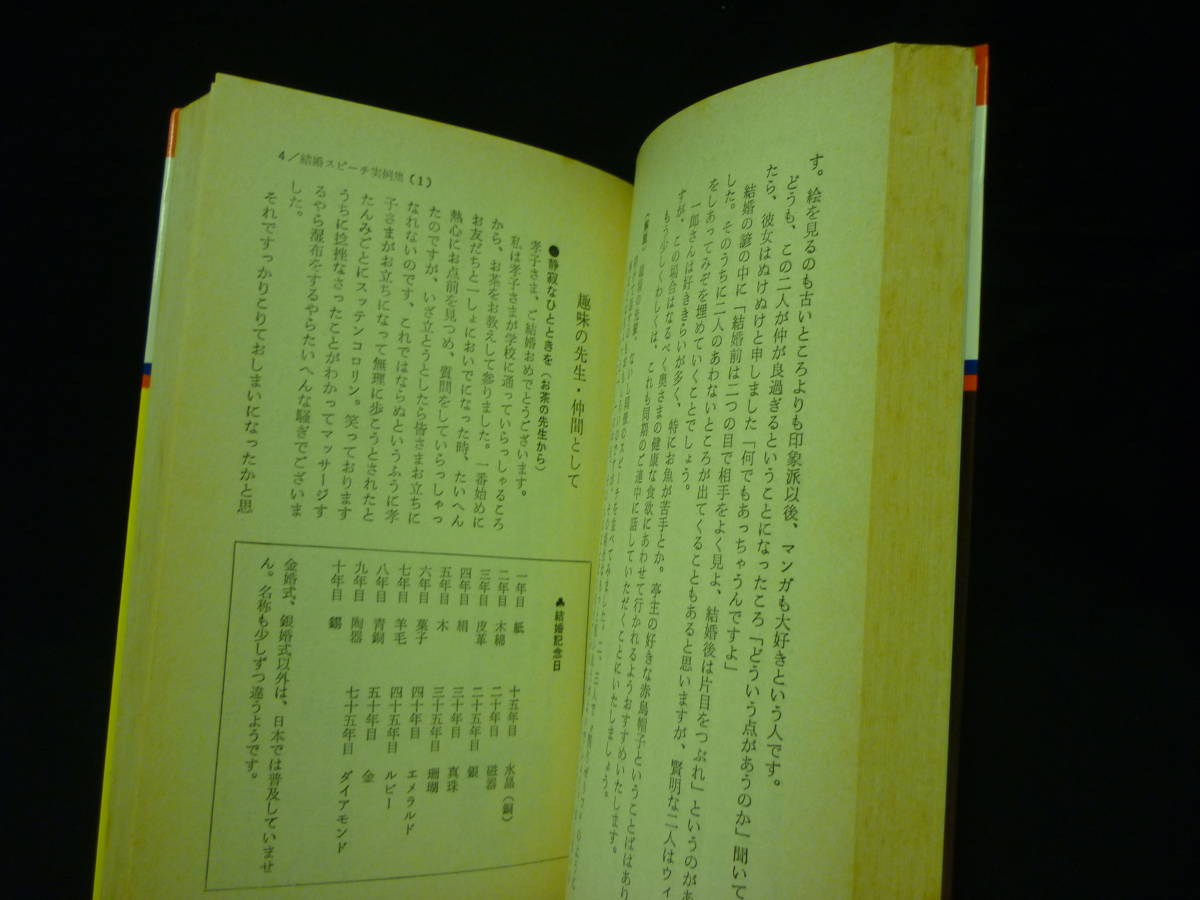 す。絵を見るのも古いところよりも印象派以後、マンガも大好きという人です。
どうも、この二人が仲が良過ぎるということになったころ「どういう点があうのか」聞いて
たら、彼女はぬけぬけと申しました「何でもあっちゃうんですよ」
結婚の諺の中に「結婚前は二つの目で相手をよく見よ、結婚後は片目をつぶれ」というのがあ
した。そのうちに二人のあわないところが出てくることもあると思いますが、賢明な二人はウィ
をしあってみぞを埋めていくことでしょう。
一郎さんは好ききらいが多く、特にお魚が苦手とか。亭主の好きな赤烏帽子ということばはあり
すが、この場合はなるべく奥さまの健康な食欲にあわせて行かれるようおすすめいたします。
もう少しくわしくは、これも同期のご連中に話していただくことにいたしましょう。
4／結婚スピーチ実例集(1)
趣味の先生・仲間として
●静寂なひとときを(お茶の先生から)
孝子さま、ご結婚おめでとうございます。
私は孝子さまが学校に通っていらっしゃるころ
から、お茶をお教えして参りました。一番始めに
お友だちと一しょにおいでになった時、たいへん
熱心にお点前を見つめ、質問をしていらっしゃっ
たのですが、いざ立とうとしたら皆さまお立ちに
なれないのです、これではならぬというふうに孝
子さまがお立ちになって無理に歩こうとされたと
たんみごとにスッテンコロリン。笑っております
うちに捻挫なさったことがわかってマッサージす
るやら湿布をするやらたいへんな騒ぎでございま
した。
それですっかりこりておしまいになったかと思
♣結婚記念日
一年目 紙
二年目 木綿
三年目 皮革
四年目 絹
五年目 木
六年目 菓子
七年目 羊毛
八年目 青銅
九年目 陶器
十年目 錫
十五年目 水晶(銅)
二十年目 磁器
二十五年目 銀
三十年目 真珠
三十五年目 珊瑚
四十年目 エメラルド
四十五年目 ルビー
五十年目 金
七十五年目 ダイアモンド
金婚式、銀婚式以外は、日本では普及していませ
ん。名称も少しずつ違うようです。